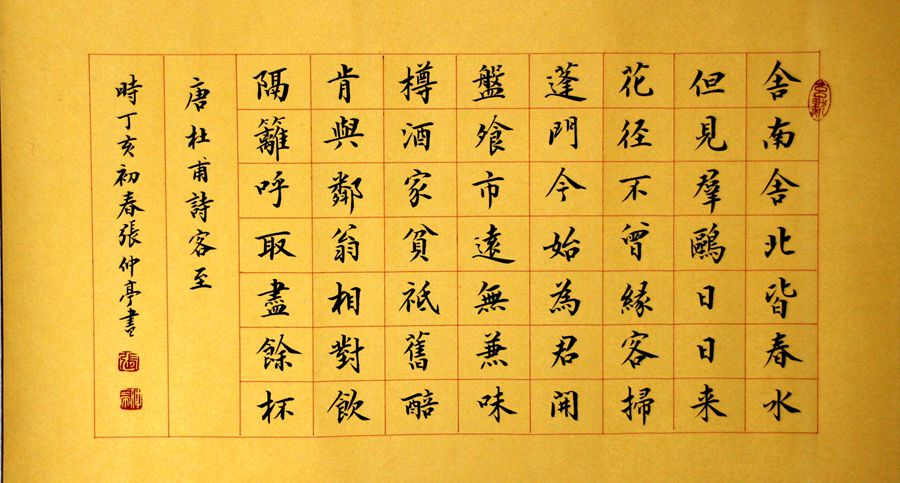 舍南舍北皆春水
但見羣鷗日日来
花径不曾緣客掃
蓬門今始為君開
盤飱市遠無兼味
樽酒家貧祗舊醅
肯與鄰翁相對飲
隔籬呼取盡餘杯
唐杜甫詩客至
時丁亥初春張仲亭書